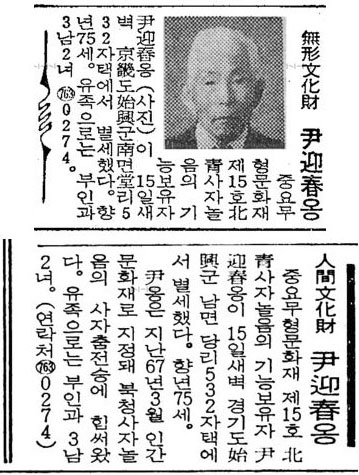 無形文化財 尹迎春옹
중요무
형문화재
제15호 北
靑사자놀
음의 기
능보유자
尹迎春옹(사진)이 15일새
벽 京畿도始興군南면堂리5
32자택에서 별세했다. 향
년75세. 유족으로는 부인과
3남2녀 (763)0274.
人間文化財 尹迎春옹
중요무형문화재 제15호 北
靑사자놀음의 기능보유자 尹
迎春옹이 15일새벽 경기도始
興군 남면 당리532자택에
서 별세했다. 향년75세.
尹옹은 지난67년3월 인간
문화재로 지정돼 북청사자놀
음의 사자춤전승에 힘써왔
다. 유족으로는 부인과 3남
2녀. (연락처(763)0274)